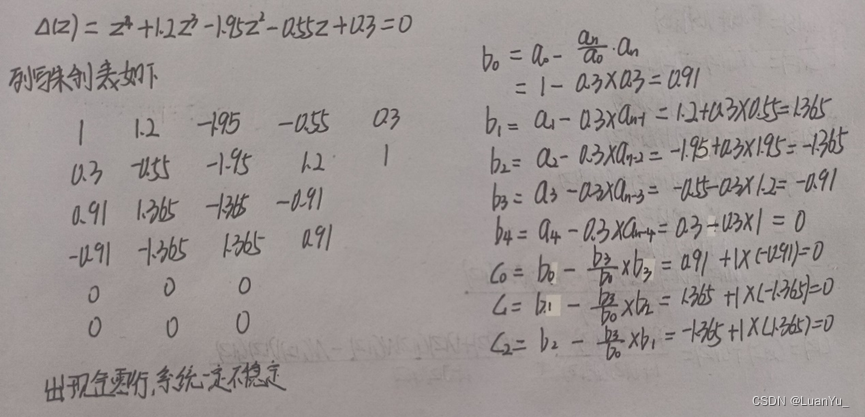 Δ(z) = z⁴ + 1.2z³ - 1.95z² - 0.55z + 0.3 = 0
列写朱利表如下
1 1.2 -1.95 -0.55 0.3
0.3 -0.55 -1.95 1.2 1
0.91 1.365 -1.365 -0.91
-0.91 -1.365 1.365 0.91
0 0 0
0 0 0
出现全零行,系统一定不稳定
b₀ = a₀ - aₙ/a₀ · aₙ
= 1 - 0.3×0.3 = 0.91
b₁ = a₁ - 0.3×aₙ₋₁ = 1.2+0.3×0.55 = 1.365
b₂ = a₂ - 0.3×aₙ₋₂ = -1.95+0.3×1.95 = -1.365
b₃ = a₃ - 0.3×aₙ₋₃ = -0.55-0.3×1.2 = -0.91
b₄ = a₄ - 0.3×aₙ₋₄ = 0.3-0.3×1 = 0
c₀ = b₀ - b₃/b₀ × b₃ = 0.91 + 1×(-0.91) = 0
c₁ = b₁ - b₃/b₀ × b₂ = 1.365 + 1×(-1.365) = 0
c₂ = b₂ - b₃/b₀ × b₁ = -1.365 + 1×(1.365) = 0
CSDN @LuanYu_